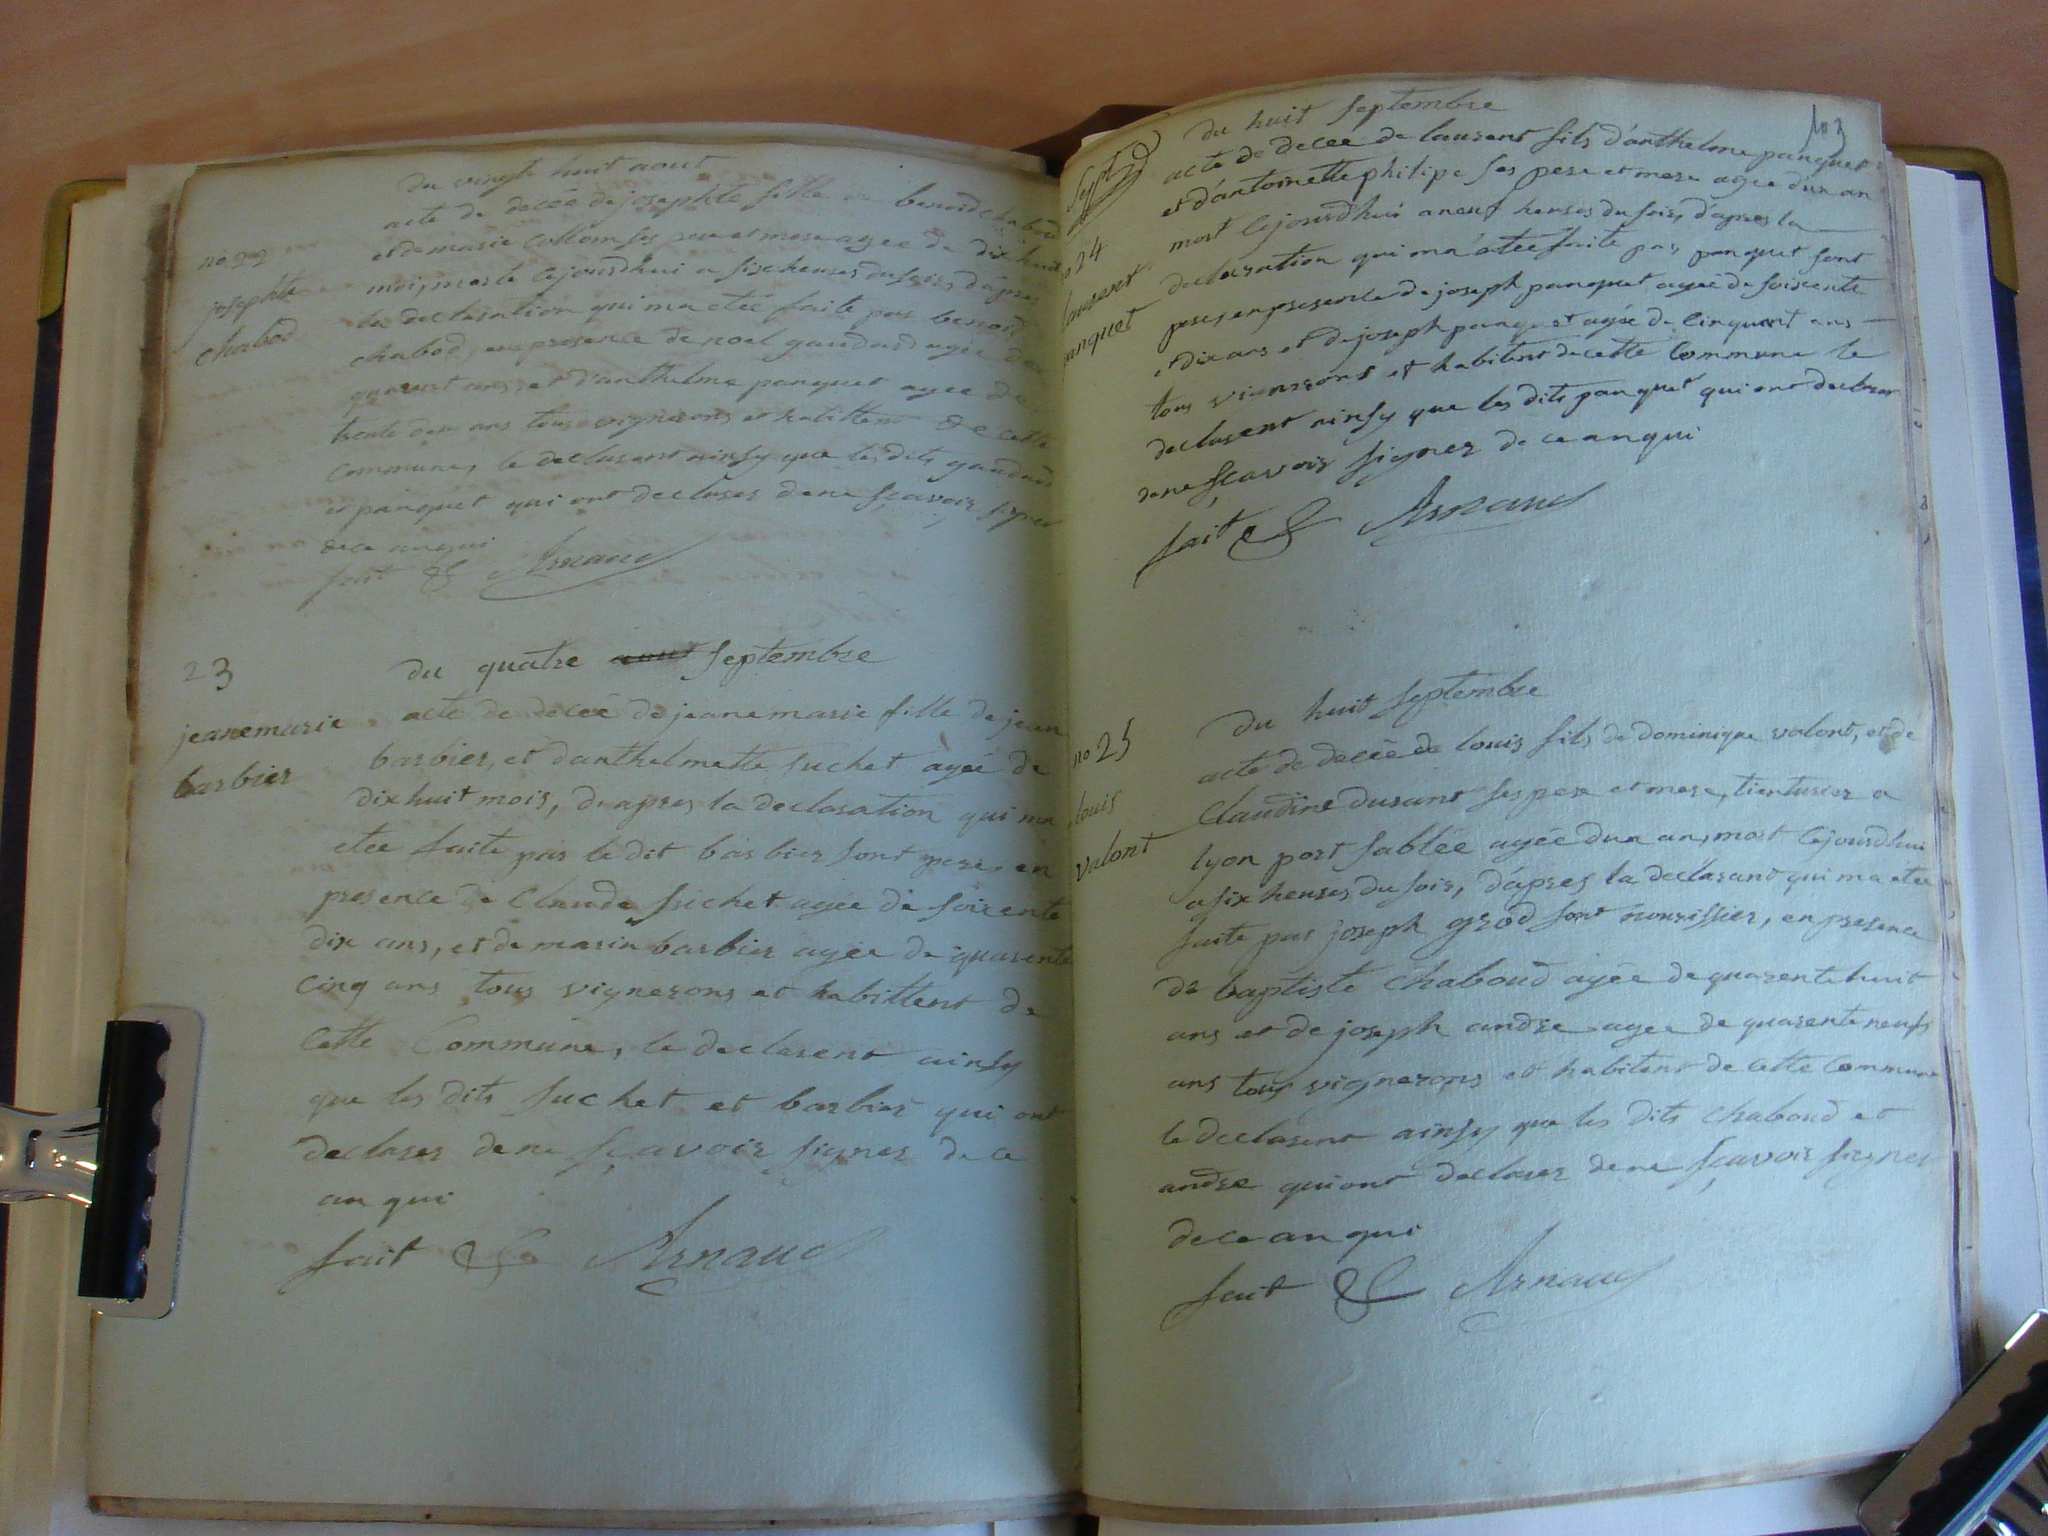 du vingt huit aout
acte de decée de josephte fille de benoid chabod
et de marie collom ses pere et mere agee de dix huit
moi, morte cejourdhui a six heures du soir, d'apres
la declaration qui ma etée faite par benoid
chabod, en presence de noel gaudard agée de
quarent ans, et d'anthelme panquet agee de
trente deux ans tous vignerons et habittent de cette
commune, le declarent ainsy que les dits gaudard
et panquet qui ont declarer de ne sçavoir signer
de ce anqui
fait & Arnaud
no 22
josephte
chabod
23
jeanemarie
barbier
du quatre septembre
acte de decée de jeanemarie fille de jean
barbier, et d'anthelmette suchet agée de
dix huit mois, d'apres la declaration qui ma
etee faite par le dit barbier sont pere, en
presence de Claude suchet agée de soixente
dix ans, et de marin barbier agée de quarente
cinq ans tous vignerons et habittent de
cette Commune, le declarent ainsy
que les dits suchet et barbier qui ont
declarer de ne sçavoir signer de ce
an qui
fait & Arnaud
103
Sept
du huit septembre
acte de decée de laurent fils d'anthelme panquet
et d'antoinette philipe ses pere et mere agée d'un an
mort cejourdhui a neuf heures du soir, d'apres la
declaration qui m'a etee faite par panquet sont
pere, en presence de joseph panquet agée de soixente
et dix ans et de joseph panquet agée de cinquent ans
tous vignerons et habitent de cette commune le
declarent ainsy que les dits panquet qui ont declarer
de ne sçavoir signer de ce anqui
fait & Arnaud
no 24
laurent
panquet
no 25
louis
valont
du huit septembre
acte de decée de louis fils de dominique valont, et de
Claudine durant ses pere et mere, tienturier a
lyon port sablée agée d'un an, mort cejourdhui
a six heures du soir, d'apres la declarant qui ma etee
faite par joseph grod sont nourissier, en presence
de baptiste chaboud agée de quarente huit
ans et de joseph andre agee de quarente neufs
ans tous vignerons et habitent de cette commune
le declarent ainsy que les dits chaboud et
andre qui ont declarer de ne sçavoir signer
de ce an qui
fait & Arnaud